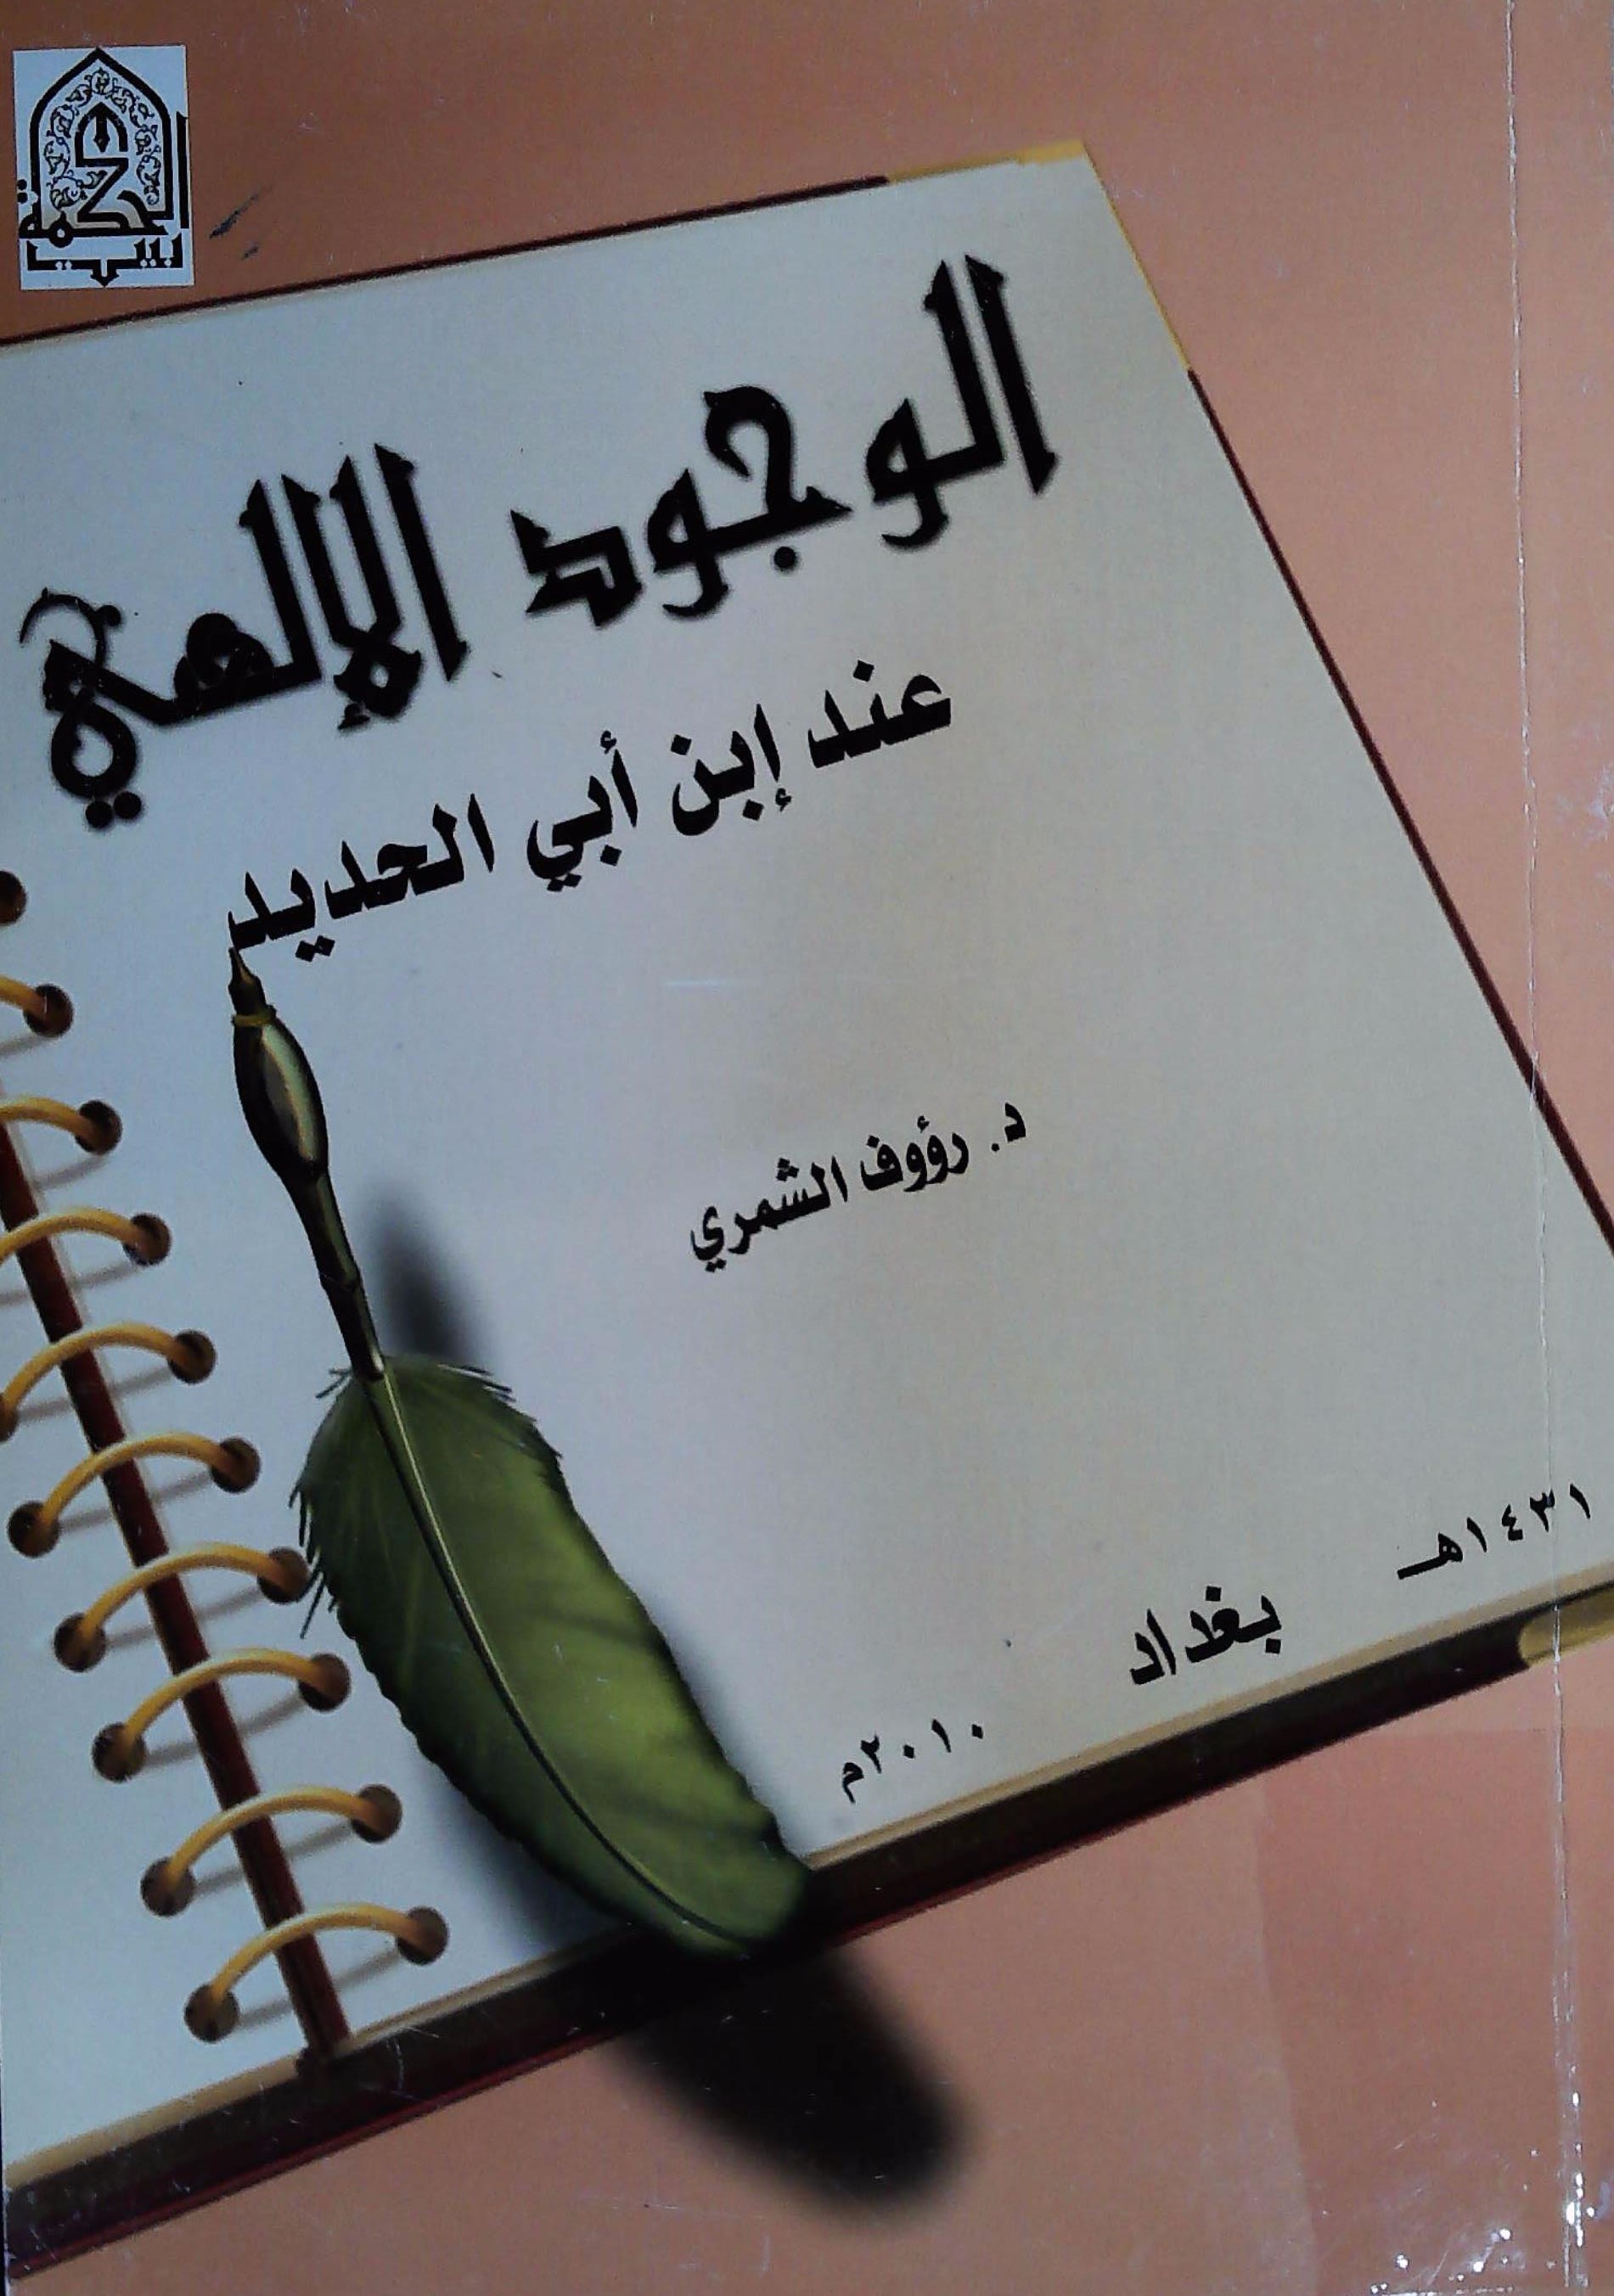 بيت الحكمة
الوجود الإلهي
عند إبن أبي الحديد
د. رؤوف الشمري
١٤٣١هـ
بغداد
٢٠١٠م